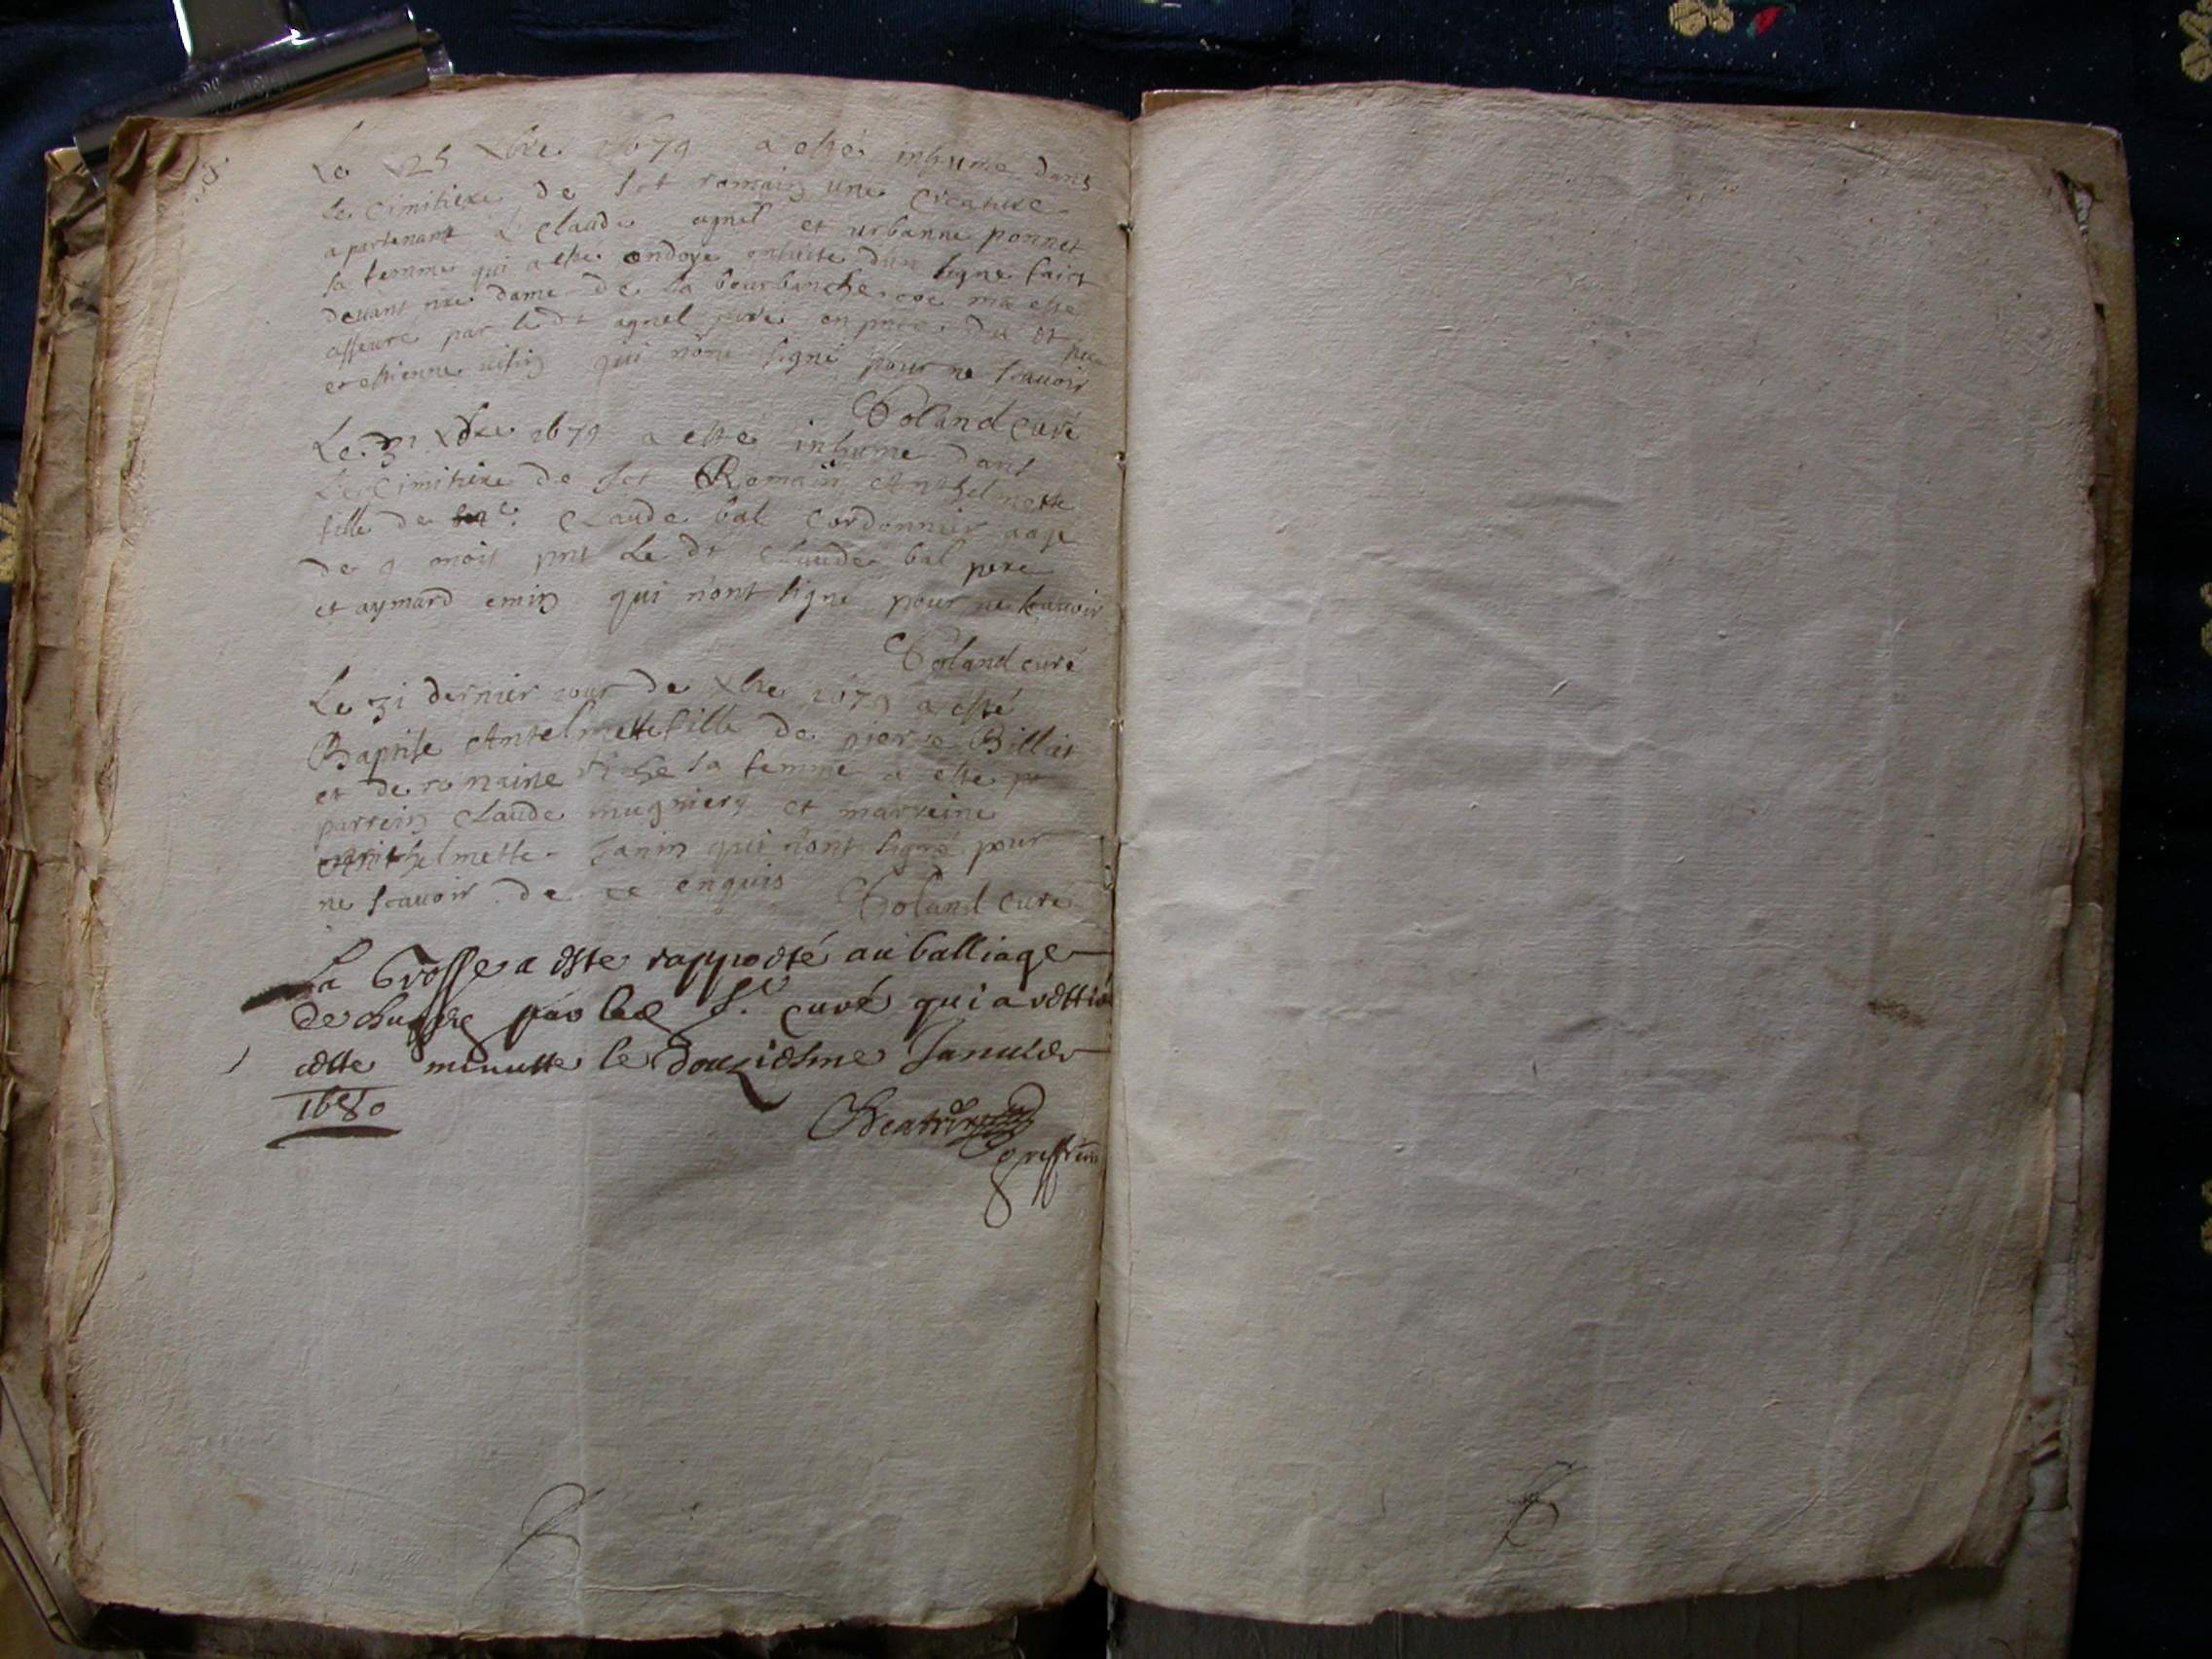 Le 25 Xbre 1679 a esté inhume dans
le cimitiere de sct romain une creature
apartenant a Claude agnel et urbanne ponnet
sa femme qui a esté ondoyé ensuite dun signe faict
devant nre dame de la bourbanche coe ma esté
asseuré par le dt agnel pere en pnce du dt
et estienne qui nont signé pour ne scavoir
Goland curé
Le 31 Xbre 1679 a esté inhume dans
le cimitiere de sct Romain Anthelmette
fille de Claude bal cordonnier aage
de 9 mois pnt le dt Claude bal pere
et aymard emin qui n'ont signe pour ne scavoir
Goland curé
Le 31 dernier iour de Xbre 1679 a esté
Baptise Antelmette fille de pierre Billiet
et de romaine sa femme a este
parrein Claude mugniery et marreine
Anthelmette Janin qui nont signé pour
ne scavoir de ce enquis Goland curé
La Grosse a esté rapporté au balliage
de par le Sr. curé qui a rettiré
cette minutte le douziesme Januier
1680
greffier